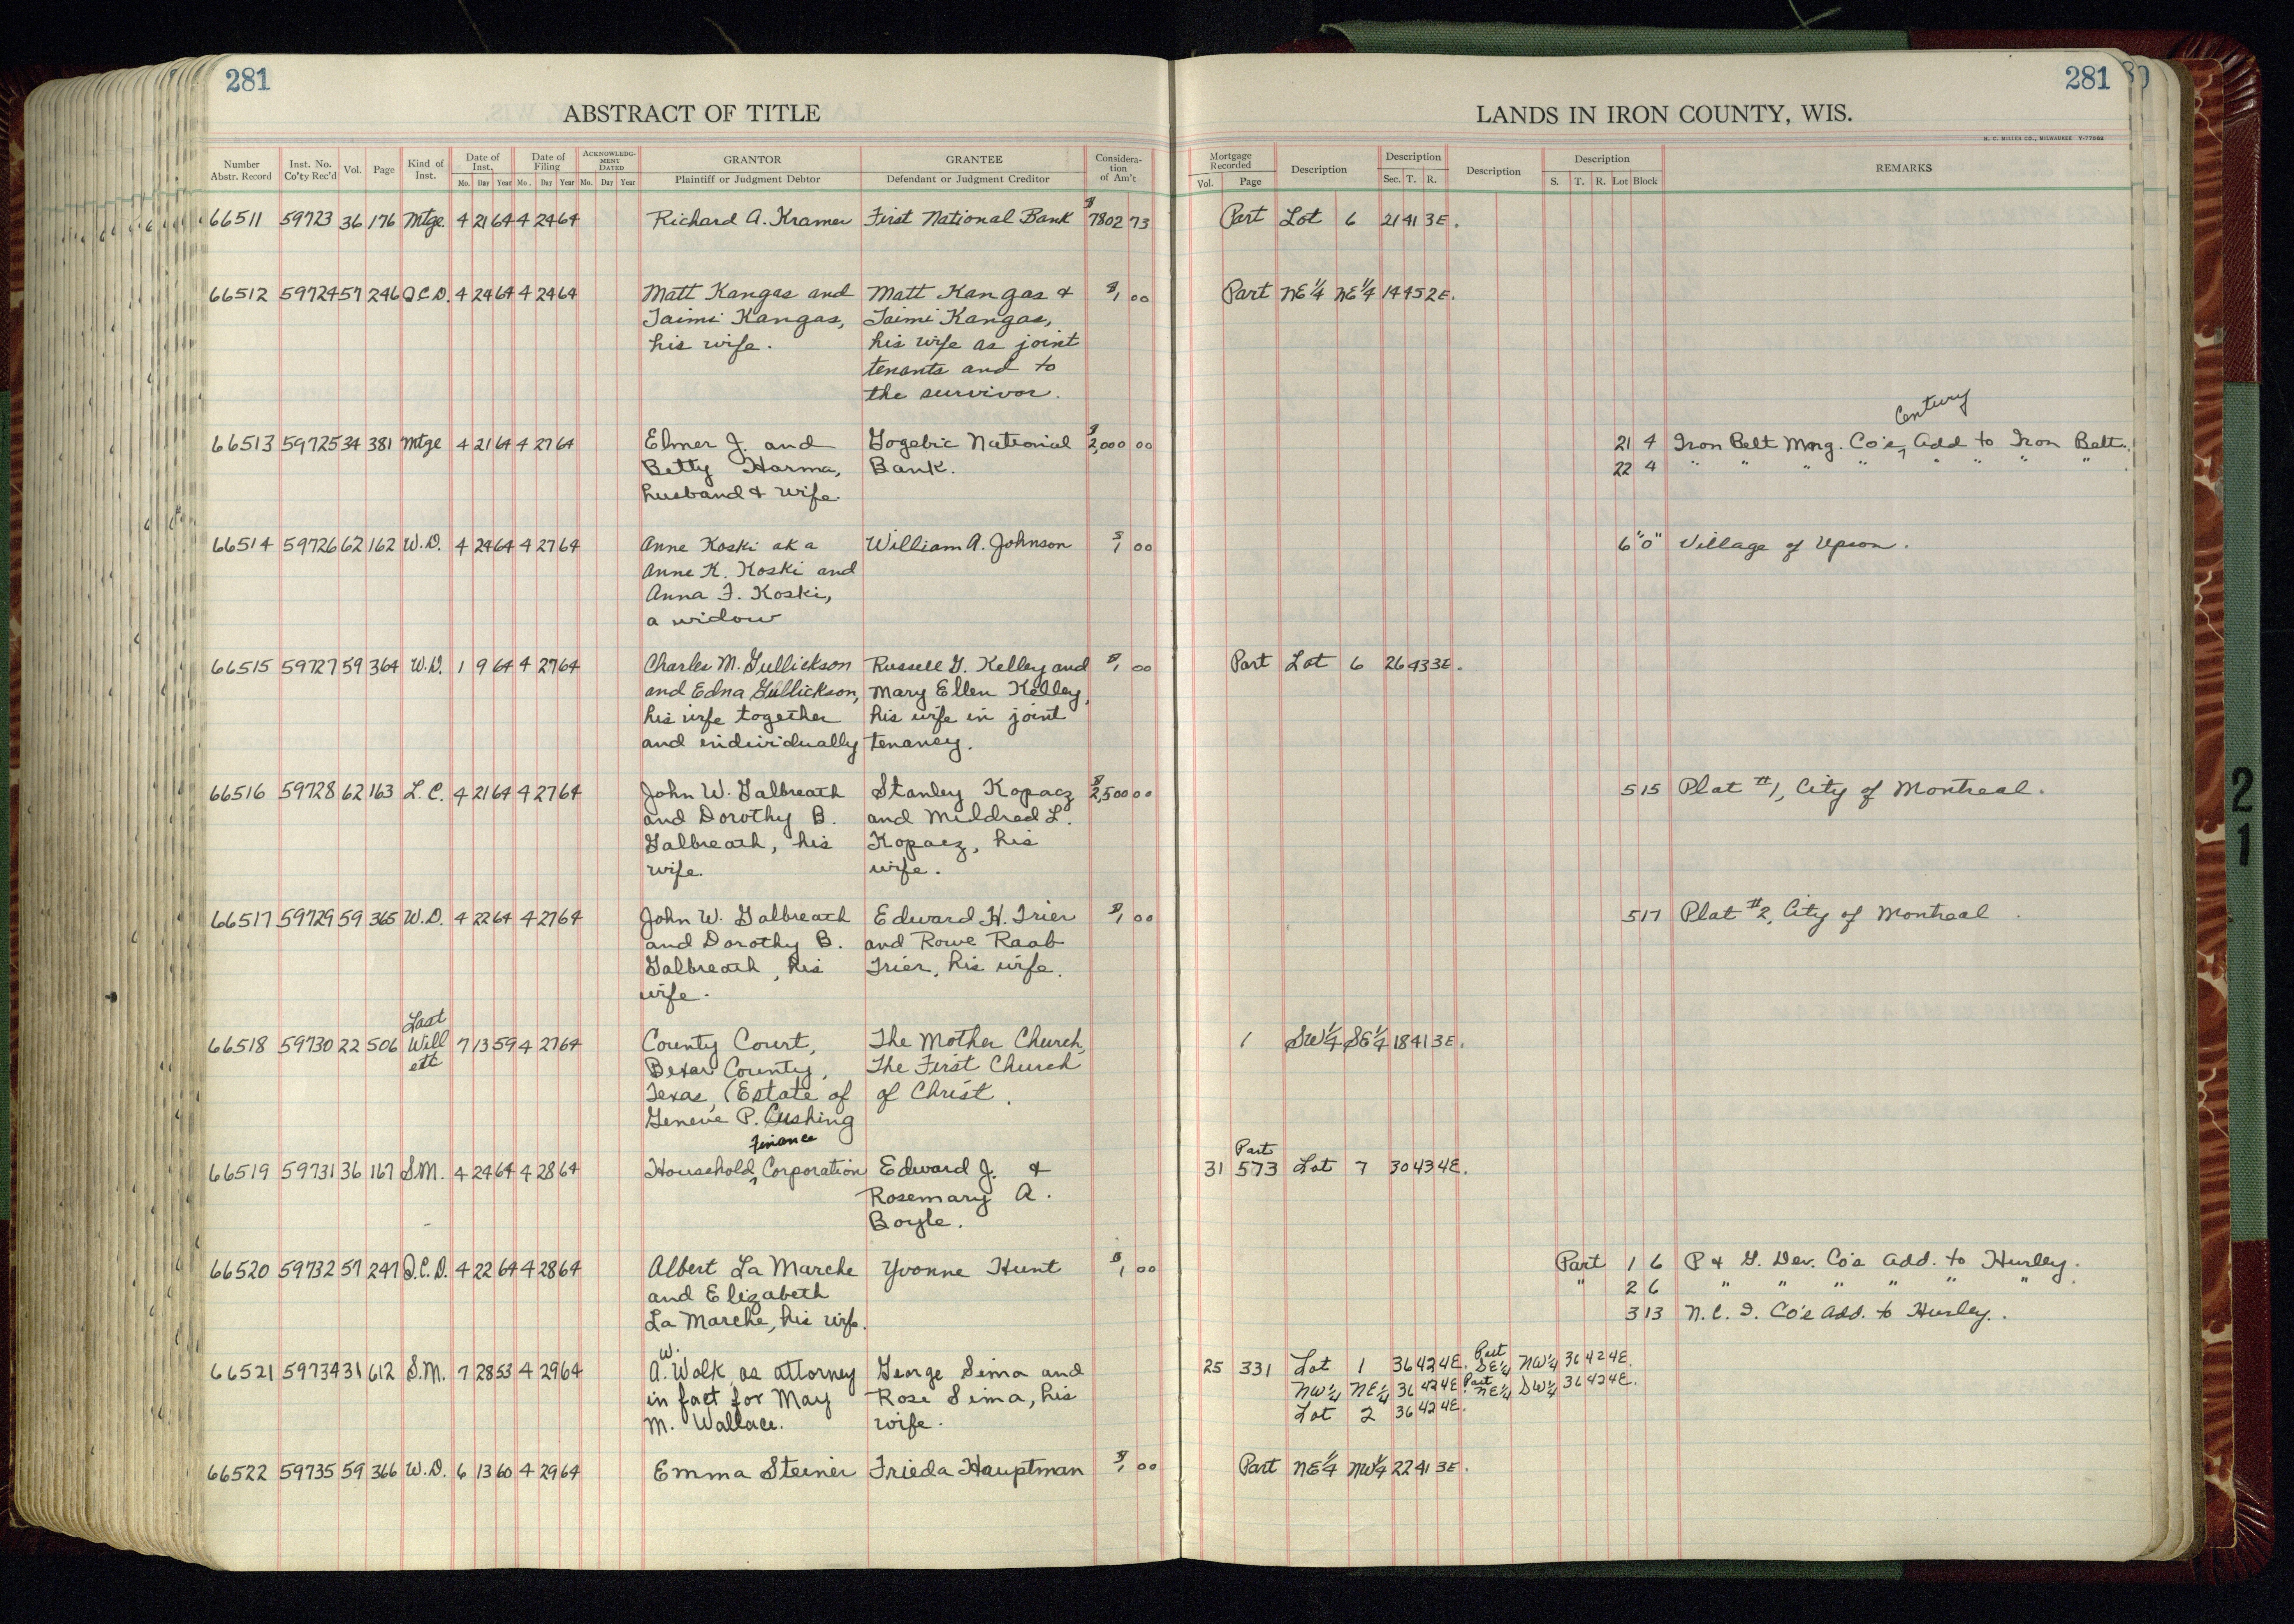 281
ABSTRACT OF TITLE
Number Abstr. Record Inst. No. Co'ty Rec'd Vol. Page Kind of Inst. Date of Inst. Mo. Day Year Date of Filing Mo. Day Year ACKNOWLEDGMENT DATED Mo. Day Year GRANTOR Plaintiff or Judgment Debtor GRANTEE Defendant or Judgment Creditor Consideration of Am't
281
LANDS IN IRON COUNTY, WIS.
H. C. MILLER CO., MILWAUKEE
Mortgage Recorded Vol. Page Description Description Sec. T. R. Description Description S. T. R. Lot Block REMARKS
66511 59723 36 176 Mtge. 4 21 64 4 24 64 Richard A. Kramer First National Bank $7802 73 Part Lot 6 21 41 3E.
66512 59724 57 246 Q.C.D. 4 24 64 4 24 64 Matt Kangas and Matt Kangas & $1 00 Part NE 1/4 NE 1/4 14 45 2E.
Taimi Kangas, Taimi Kangas,
his wife. his wife as joint
tenants and to
the survivor.
Century
66513 59725 34 381 Mtge 4 21 64 4 27 64 Elmer J. and Gogebic National $2,000 00 21 4 Iron Belt Mng. Co's, Add to Iron Belt.
Betty Harma, Bank. 22 4 " " " " " " " "
husband & wife.
66514 59726 62 162 W.D. 4 24 64 4 27 64 Anne Koski aka William A. Johnson $1 00 6 "O" Village of Upson.
Anne K. Koski and
Anna F. Koski,
a widow
66515 59727 59 364 W.D. 1 9 64 4 27 64 Charles M. Gullickson Russell G. Kelley and $1 00 Part Lot 6 26 43 3E.
and Edna Gullickson, Mary Ellen Kelley,
his wife together his wife in joint
and individually tenancy.
66516 59728 62 163 L.C. 4 21 64 4 27 64 John W. Galbreath Stanley Kopacz $2,500 00 5 15 Plat #1, City of Montreal.
and Dorothy B. and Mildred L.
Galbreath, his Kopacz, his
wife. wife.
66517 59729 59 365 W.D. 4 22 64 4 27 64 John W. Galbreath Edward H. Trier $1 00 5 17 Plat #2, City of Montreal.
and Dorothy B. and Rowe Raab
Galbreath, his Trier, his wife.
wife.
Last
66518 59730 22 506 Will 7 13 59 4 27 64 County Court, The Mother Church, 1 SW 1/4 SE 1/4 18 41 3E.
ett Bexar County, The First Church
Texas, (Estate of of Christ.
Geneve P. Cushing
Finance
Part
66519 59731 36 167 S.M. 4 24 64 4 28 64 Household Corporation Edward J. & 31 573 Lot 7 30 43 4E.
Rosemary A.
Boyle.
66520 59732 57 247 Q.C.D. 4 22 64 4 28 64 Albert La Marche Yvonne Hunt $1 00 Part 1 6 P & G. Dev. Co's Add. to Hurley.
and Elizabeth " 2 6 " " " " " "
La Marche, his wife. 3 13 N.C.I. Co's Add. to Hurley.
W. Part
66521 59734 31 612 S.M. 7 28 53 4 29 64 A. Walk, as attorney George Sima and 25 331 Lot 1 36 42 4E. SE 1/4 NW 1/4 36 42 4E.
in fact for May Rose Sima, his NW 1/4 NE 1/4 36 42 4E. Part NE 1/4 SW 1/4 36 42 4E.
M. Wallace. wife. Lot 2 36 42 4E.
66522 59735 59 366 W.D. 6 13 60 4 29 64 Emma Steiner Frieda Hauptman $1 00 Part NE 1/4 NW 1/4 22 41 3E.
21